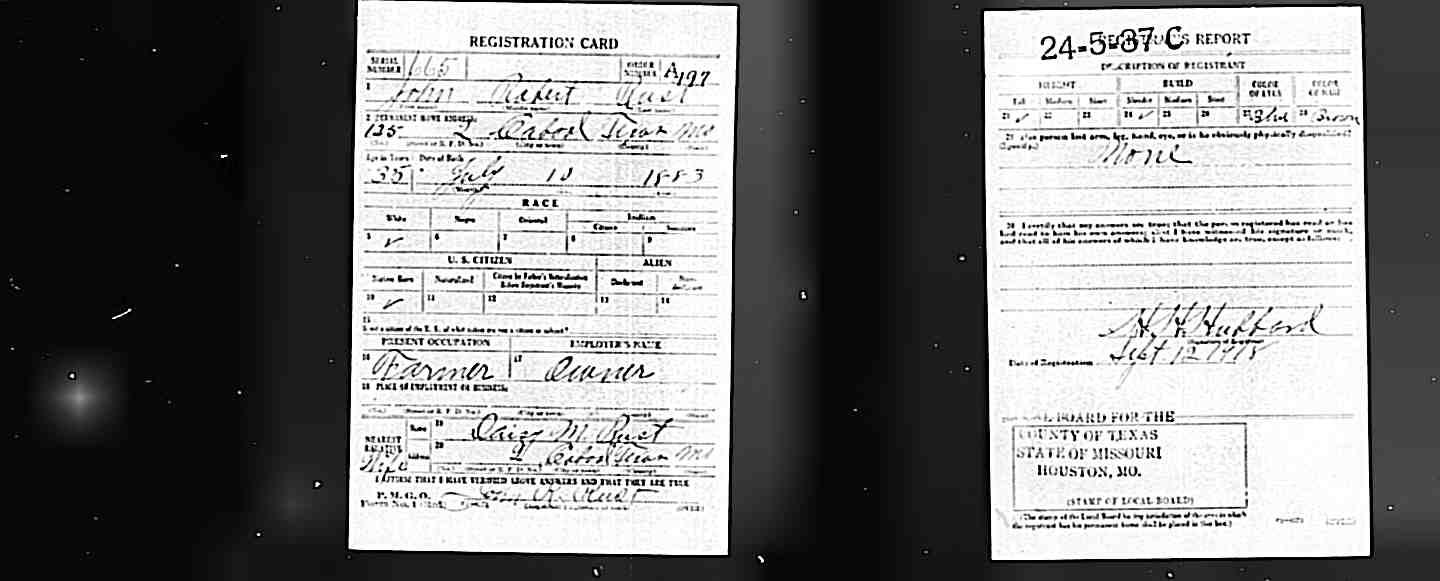 REGISTRATION CARD
SERIAL NUMBER 665 ORDER NUMBER A197
1 John Robert Rust
2 PERMANENT HOME ADDRESS:
125 2 Cabool Texas Mo
(No.) (Street or R. F. D. No.) (City or town) (County) (State)
Age in Years Date of Birth
35 July 10 1883
RACE
White Negro Oriental Indian
Citizen
5 ✓ 6 7 8 9
U. S. CITIZEN ALIEN
Native Born Naturalized Citizen by Father's Naturalization Before Registrant's Majority Declarant Non-declarant
10 ✓ 11 12 13 14
15
If not a citizen of the U. S., of what nation are you a citizen or subject?
PRESENT OCCUPATION EMPLOYER'S NAME
16 Farmer 17 Owner
18 PLACE OF EMPLOYMENT OR BUSINESS:
(No.) (Street or R. F. D. No.) (City or town) (County) (State)
NEAREST RELATIVE Name 19 Daisy M. Rust
Wife Address 20 2 Cabool Texas Mo
I AFFIRM THAT I HAVE VERIFIED ABOVE ANSWERS AND THAT THEY ARE TRUE
P. M. G. O. John R. Rust
Form No. 1 (Red) (OVER)
24-5-37 C
REGISTRAR'S REPORT
DESCRIPTION OF REGISTRANT
HEIGHT BUILD COLOR OF EYES COLOR OF HAIR
Tall Medium Short Slender Medium Stout
21 ✓ 22 23 24 ✓ 25 26 27 Blue 28 Brown
29 Has person lost arm, leg, hand, eye, or is he obviously physically disqualified?
(Specify.) None
30 I certify that my answers are true; that the person registered has read or has
had read to him his own answers; that I have witnessed his signature or mark,
and that all of his answers of which I have knowledge are true, except as follows:
H. H. Hubbard
Date of Registration Sept. 12 1918
LOCAL BOARD FOR THE
COUNTY OF TEXAS
STATE OF MISSOURI
HOUSTON, MO.
(STAMP OF LOCAL BOARD)
(The stamp of the Local Board having jurisdiction of the area in which
the registrant has his permanent home shall be placed in this box.)